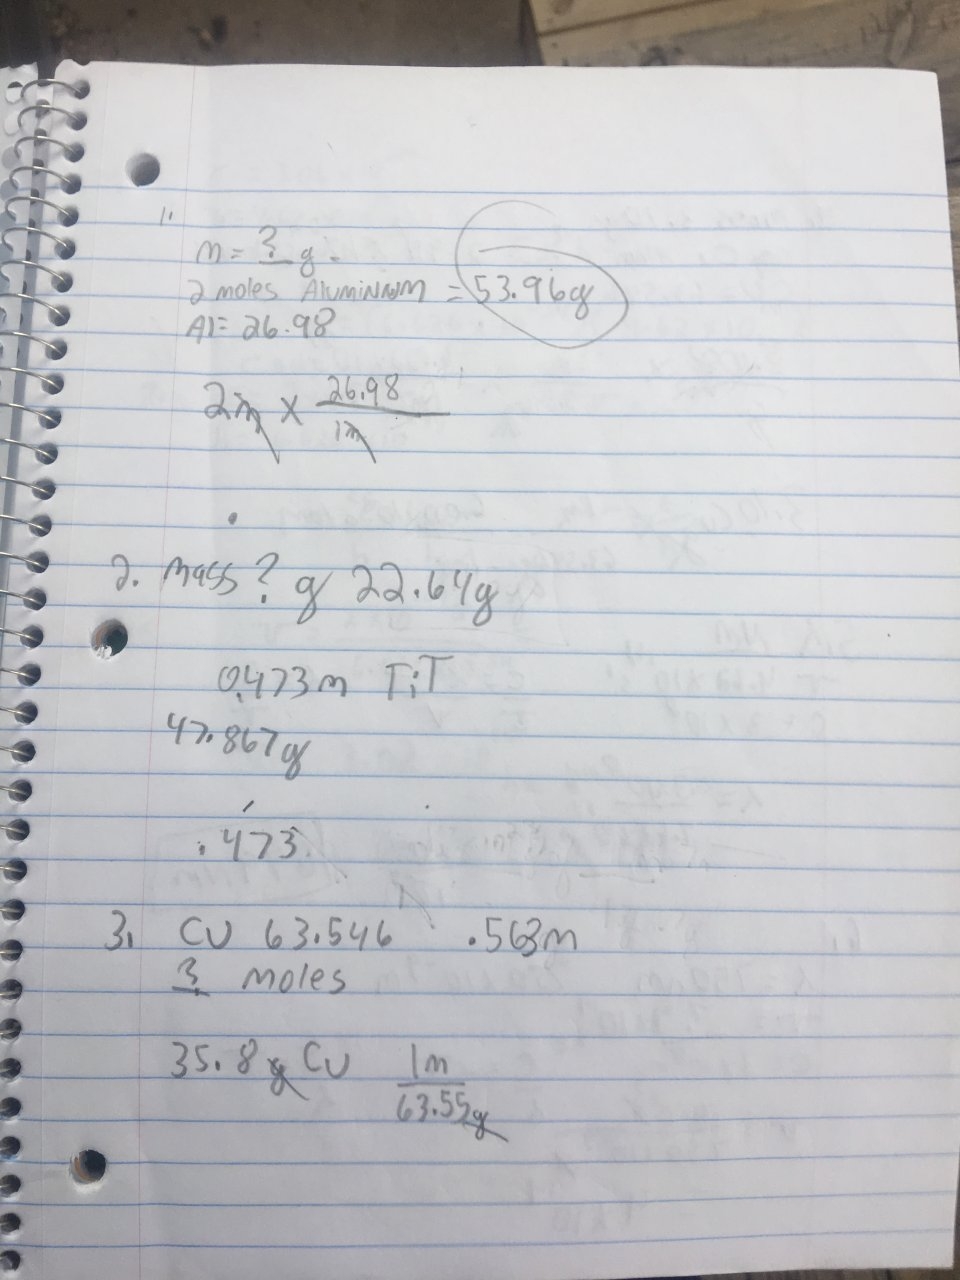 1.
m = ? g
2 moles Aluminum = 53.96g
Al = 26.98
2m x 26.98
1m
2. Mass ? g 22.64g
0.473m Ti
47.867g
.473
3. Cu 63.546 .563m
? moles
35.8g Cu 1m
63.55g